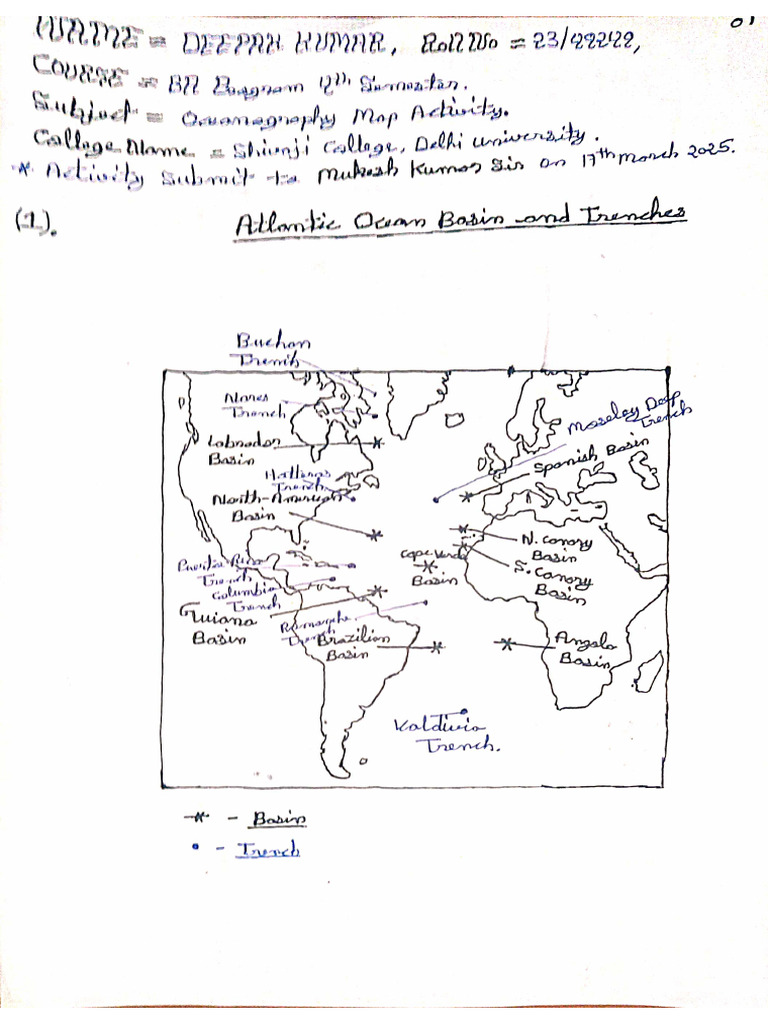 01
NAME = DEEPAK KUMAR, Roll No = 23/48248,
COURSE = BA Program 4th Semester.
Subject = Oceanography Map Activity.
College Name = Shivaji College, Delhi University.
* Activity Submit to Mukesh Kumar Sir on 17th March 2025.
(1). Atlantic Ocean Basin and Trenches
Buchan
Trench
Nares
Trench
Moseley Deep
Trench
Labrador
Basin
Spanish Basin
Trench
North-American
Basin
N. Canary
Basin
Cape Verde
Basin
S. Canary
Basin
Puerto Rico
Trench
Columbia
Trench
Guiana
Basin
Romanche
Trench
Brazilian
Basin
Angola
Basin
Valdivia
Trench.
* - Basin
• - Trench